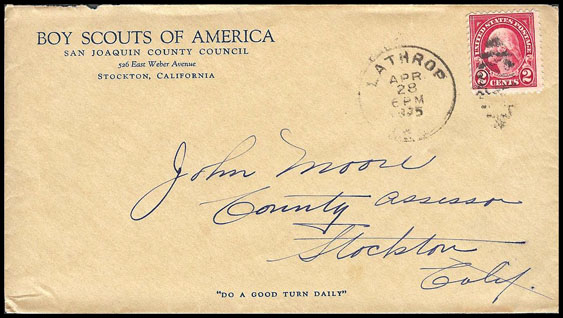 BOY SCOUTS OF AMERICA
SAN JOAQUIN COUNTY COUNCIL
526 East Weber Avenue
STOCKTON, CALIFORNIA
LATHROP
APR
28
6 PM
UNITED STATES POSTAGE
2 2
CENTS
John Moore
County Assessor
Stockton
Calif.
"DO A GOOD TURN DAILY"